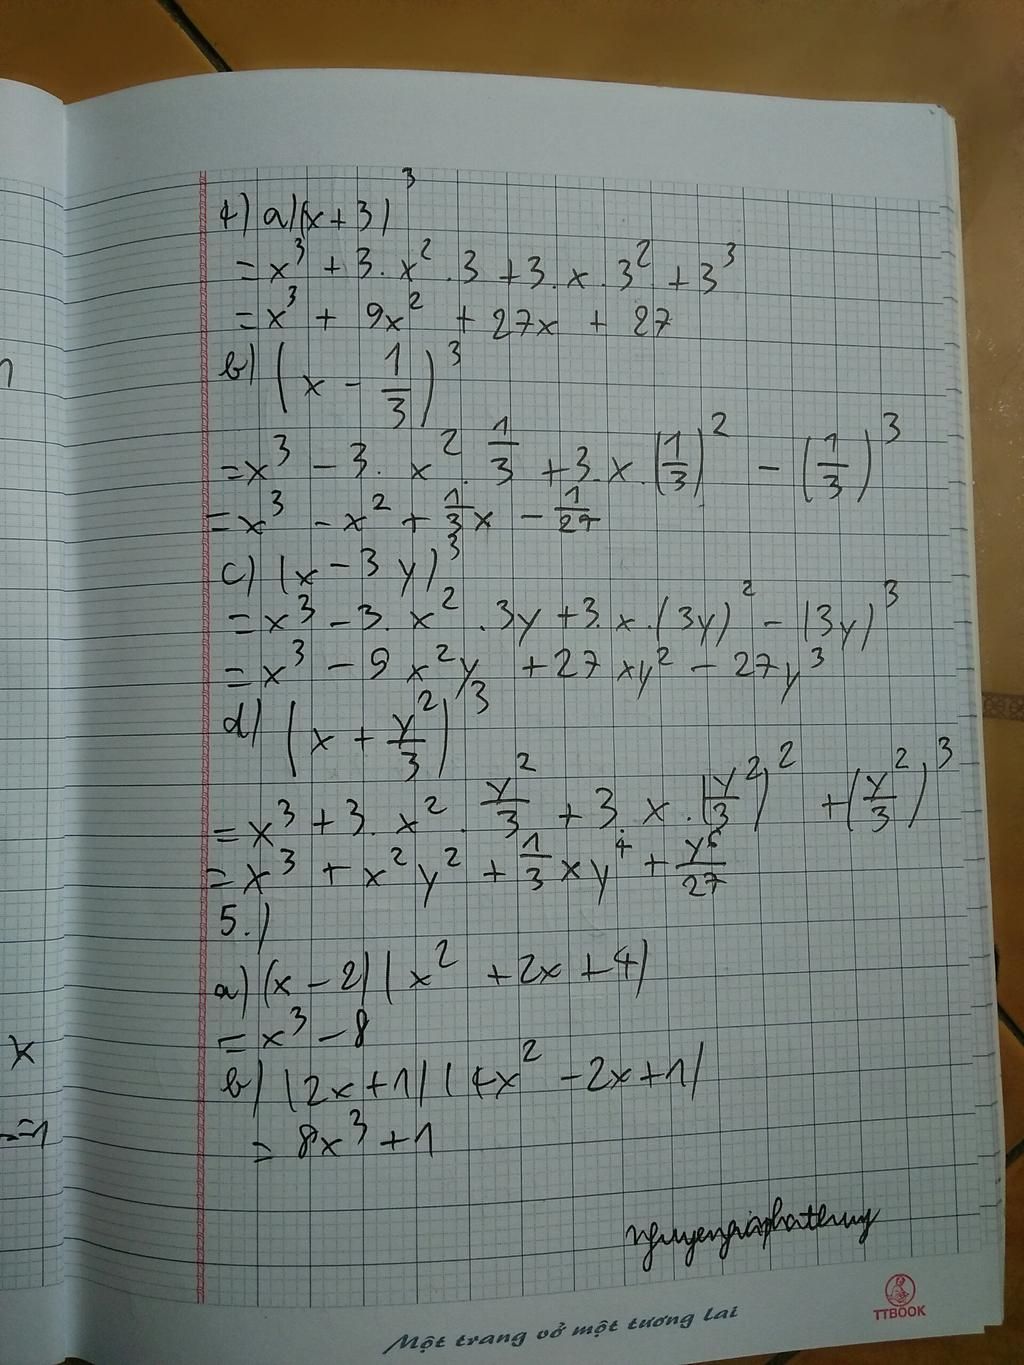 4) a) (x + 3)³
= x³ + 3. x² . 3 + 3. x . 3² + 3³
= x³ + 9x² + 27x + 27
b) (x - 1/3)³
= x³ - 3. x² . 1/3 + 3. x . (1/3)² - (1/3)³
= x³ - x² + 1/3 x - 1/27
c) (x - 3y)³
= x³ - 3. x² . 3y + 3. x . (3y)² - (3y)³
= x³ - 9x²y + 27xy² - 27y³
d) (x + y²/3)³
= x³ + 3. x² . y²/3 + 3. x . (y²/3)² + (y²/3)³
= x³ + x²y² + 1/3 xy⁴ + y⁶/27
5.)
a) (x - 2) (x² + 2x + 4)
= x³ - 8
b) (2x + 1) (4x² - 2x + 1)
= 8x³ + 1
x
= 1
Một trang vở một tương lai
TTBOOK